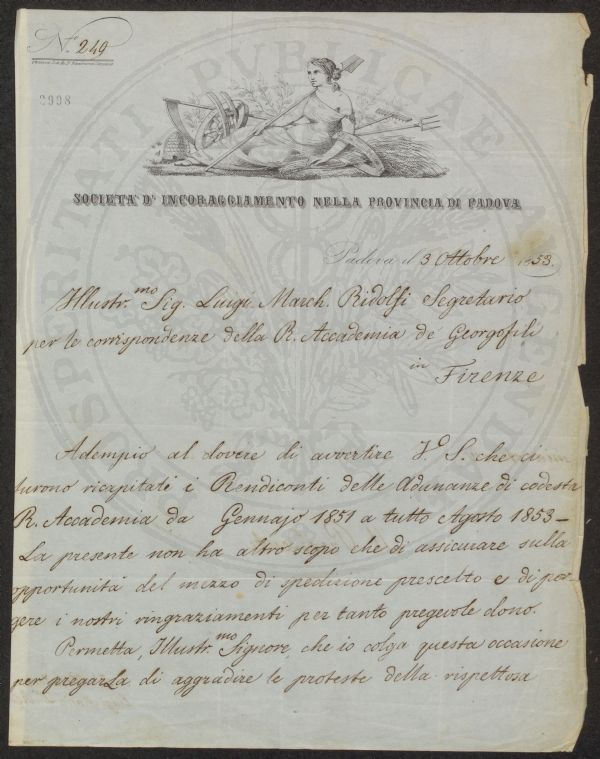 N.° 249
2998
SOCIETÀ D' INCORAGGIAMENTO NELLA PROVINCIA DI PADOVA
Padova il 3 Ottobre 1853
Illustr.mo Sig. Luigi March. Ridolfi Segretario
per le corrispondenze della R. Accademia de' Georgofili
in
Firenze
Adempio al dovere di avvertire V.a S. che ci
furono ricapitati i Rendiconti delle Adunanze di codesta
R. Accademia da Gennajo 1851 a tutto Agosto 1853 –
La presente non ha altro scopo che di assicurare sulla
opportunità del mezzo di spedizione prescelto e di por-
gere i nostri ringraziamenti per tanto pregevole dono.
Permetta, Illustr.mo Signore, che io colga questa occasione
per pregarLa di aggradire le proteste della rispettosa
PROSPERITATI PVBLICAE AVGENDAE